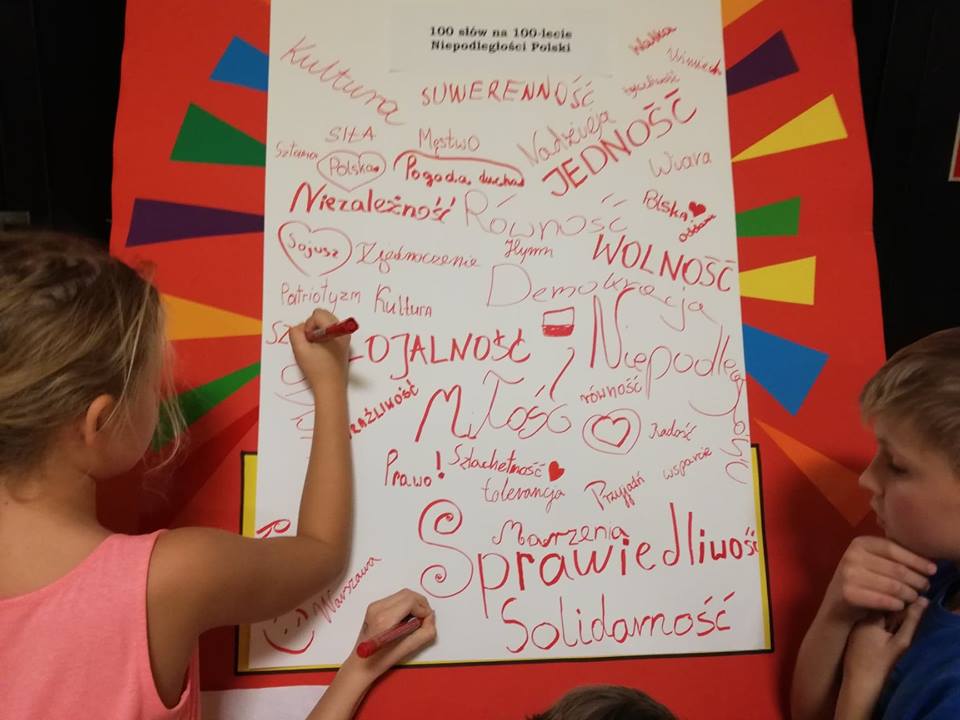 100 słów na 100-lecie
Niepodległości Polski
Kultura
SUWERENNOŚĆ
Walka
Uśmiech
SIŁA
Męstwo
Nadzieja
JEDNOŚĆ
Polska
Pogoda ducha
Wiara
Niezależność
Równość
Polska
Sojusz
Zjednoczenie
Hymn
WOLNOŚĆ
Patriotyzm
Kultura
Demokracja
LOJALNOŚĆ
Niepodległość
Miłość
równość
Radość
Prawo!
Szlachetność
tolerancja
Przyjaźń
wsparcie
Marzenia
Sprawiedliwość
Warszawa
Solidarność